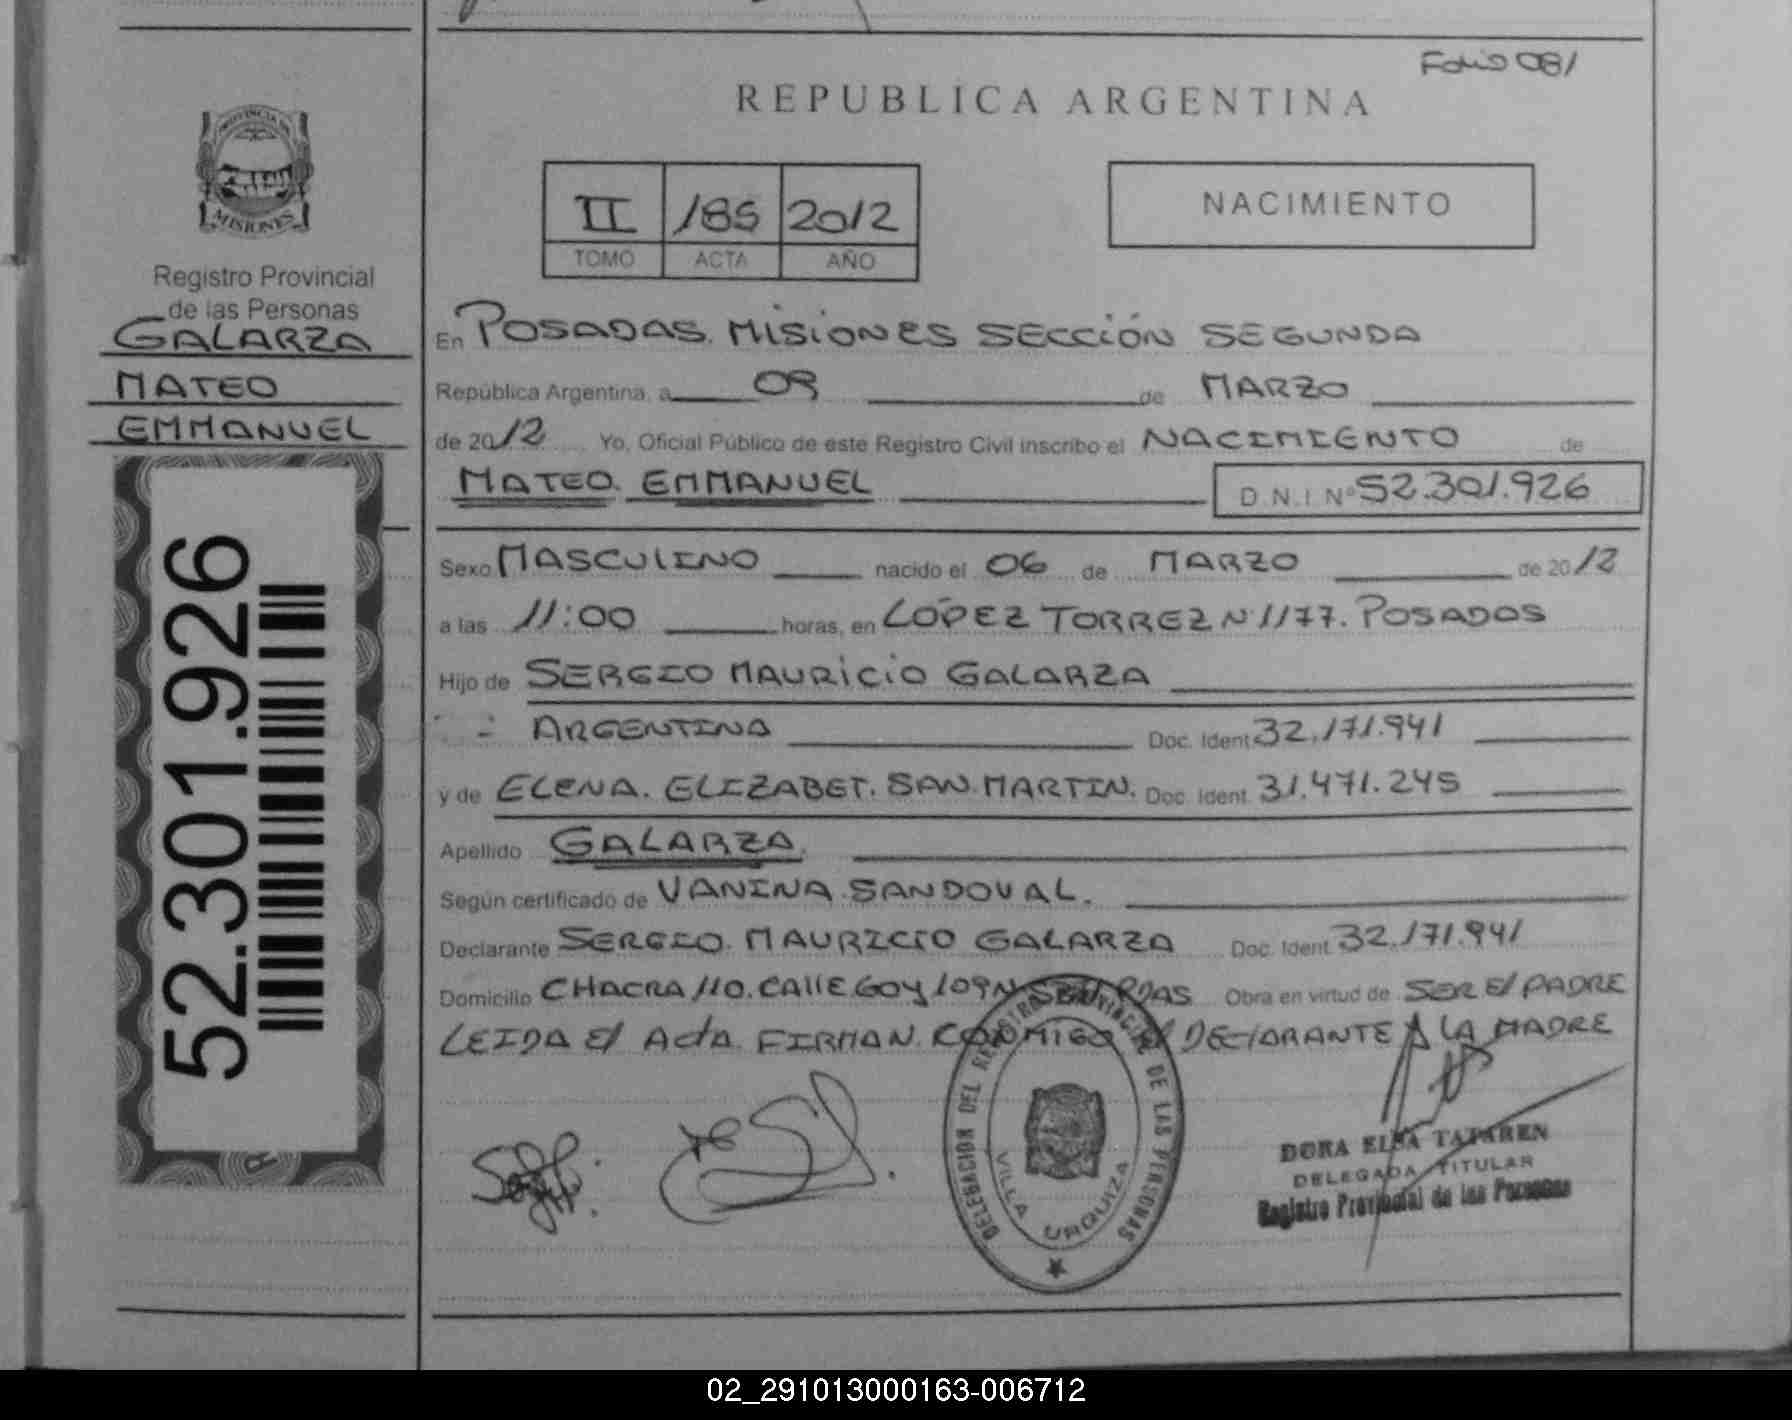 Folio 081
REPUBLICA ARGENTINA
PROVINCIA DE
MISIONES
Registro Provincial
de las Personas
GALARZA
MATEO
EMMANUEL
52.301.926
II 185 2012
TOMO ACTA AÑO
NACIMIENTO
En POSADAS. MISIONES SECCIÓN SEGUNDA
República Argentina, a 09 de MARZO
de 2012 Yo, Oficial Público de este Registro Civil inscribo el NACIMIENTO de
MATEO. EMMANUEL D.N.I. Nº 52.301.926
Sexo MASCULINO nacido el 06 de MARZO de 2012
a las 11:00 horas, en LÓPEZ TORREZ Nº 1177. POSADAS
Hijo de SERGIO MAURICIO GALARZA
ARGENTINA Doc. Ident. 32.171.941
y de ELENA. ELIZABET. SAN. MARTIN. Doc. Ident. 31.471.245
Apellido GALARZA.
Según certificado de VANINA. SANDOVAL.
Declarante SERGIO. MAURICIO GALARZA Doc. Ident. 32.171.941
Domicilio CHACRA 110. CAllE GOY 109 Obra en virtud de SER El PADRE
LEIDA El ActA. FIRMAN. CONMIGO El DEClARANTE LA MADRE
DELEGACION DEL REGISTRO PROVINCIAL DE LAS PERSONAS
VILLA URQUIZA
DORA ELSA TATAREN
DELEGADA TITULAR
Registro Provincial de las Personas
02_291013000163-006712